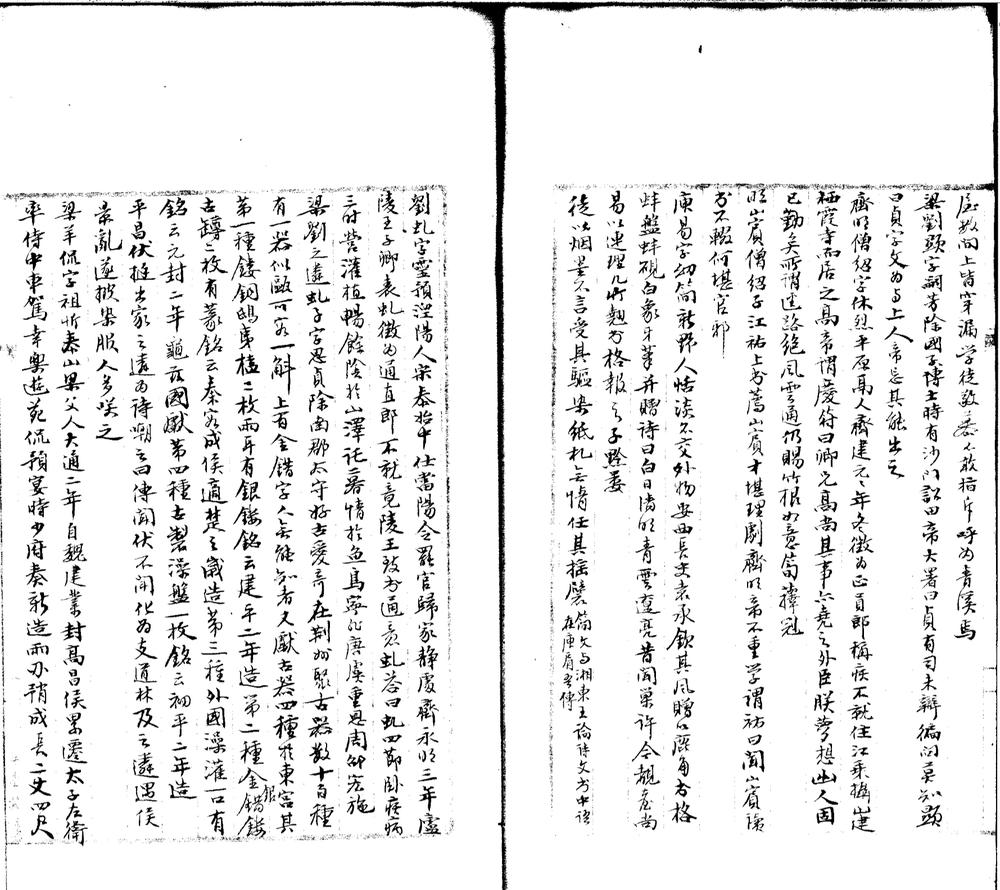 屋数间上皆穿漏学徒敬慕不敢指斥呼为青溪焉
梁劉顯字嗣芳除國子博士時有沙门訟田帝大署曰貞有司未辯徧问莫知顯
曰貞字文为与上人帝忌其能出之
齊明僧紹字休烈平原鬲人齊建元元年冬徵为正員郎稱疾不就住江乘攝山建
栖霞寺而居之高帝謂慶符曰卿兄高尚其事亦堯之外臣朕夢想幽人固
已勤矣所謂迳路絶风雲通仍賜竹根如意筍籜冠
明山賓僧紹子江祏上书薦山賓才堪理劇齊明帝不重学謂祏曰闻山賓談
书不輟何堪官邪
庾易字幼简新野人恬淡不交外物安西長史袁承欽其风贈以鹿角书格
蚌盤蚌硯白象牙筆并贈诗曰白日清明青雲遼亮昔闻巢许今覩臺尚
易以连理几竹翹书格報之子黔婁
徒以烟墨不言受其驅染纸札无情任其摇襞简文与湘東王論時文书中语
在庾肩吾傳
劉虬字靈預涅陽人宋泰始中仕當陽令罷官歸家静處齊永明三年廬
陵王子卿表虬徵为通直郎不就竟陵王致书通意虬答曰虬四節卧疾病
三时营灌植暢餘陰於山澤託暮情於魚鳥寧非唐虞重恩周邵宏施
梁劉之遴虬子字思貞除南郡太守好古愛奇在荆州聚古器数十百種
有一器似甌可容一斛上有金錯字人无能知者又獻古器四種於東宫其
第一種鏤铜鴟夷榼二枚兩耳有銀鏤銘云建平二年造第二種金銀錯鏤
古鐏二枚有篆銘云秦容成侯適楚之歲造第三種外國澡灌一口有
銘云元封二年龜兹國獻第四種古製澡盤一枚銘云初平二年造
平昌伏挺出家之遴为诗嘲之曰傳闻伏不鬥化为支道林及之遴遇侯
景亂遂披染服人多咲之
梁羊侃字祖忻泰山梁父人大通二年自魏建業封高昌侯累遷太子左衛
率侍中車駕幸樂遊苑侃預宴時少府奏新造兩刃矟成長二丈四尺